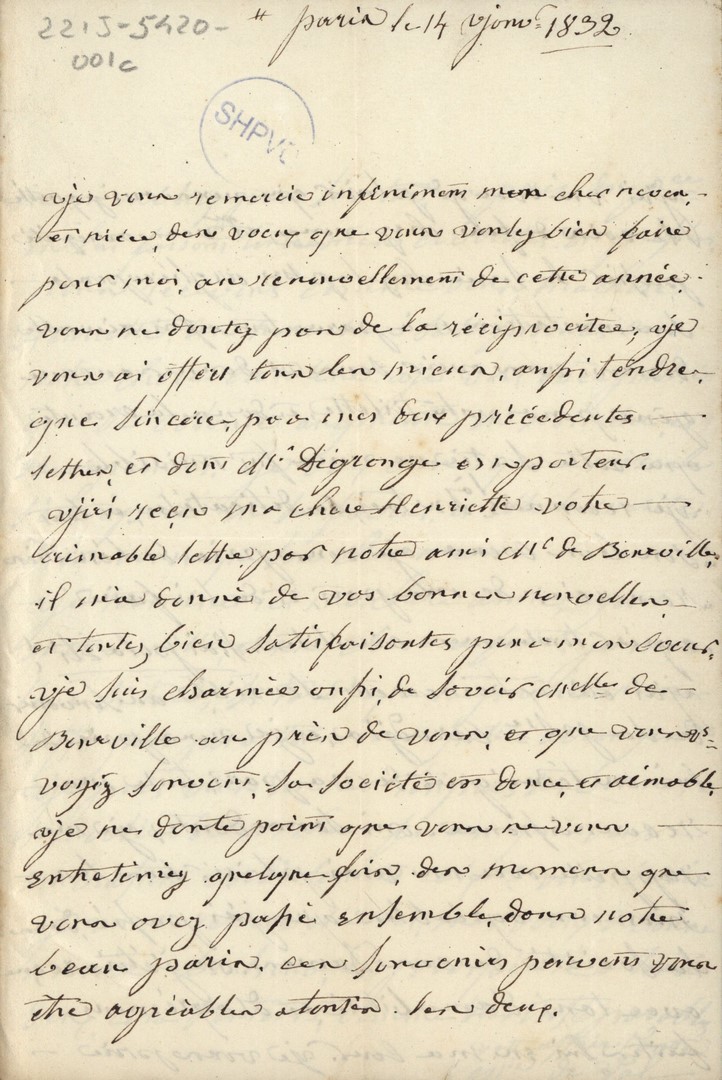 221J-5420-
001c
" paris le 14 vjanvr 1832
SHPV
vje vous remercie infiniment mon cher neveu,
et niéce, des voeux que vous voulez bien faire
pour moi, au renouvellement de cette année.
vous ne doutez pas de la réciprocitée, vje
vous ai offert tous les mieux, aussi tendre
que sincere, par mes deux précédentes
lettres, et dont Mr Dégronge est porteur.
vj'ai reçu ma chere Henriette votre
aimable lettre par notre ami Mr de Bourville,
il m'a donné de vos bonnes nouvelles
et toutes, bien satisfaisantes pour mon coeur,
vje suis charmée aussi, de savoir Melle de
Bourville au près de vous, et que vous vs
voyéz souvent, sa société est douce, et aimable,
vje ne doute point que vous ne vous
entreteniez quelque fois, des momens que
vous avez passé ensemble, dans notre
beau paris. ces souvenirs peuvent vous
etre agréables a toutes les deux.